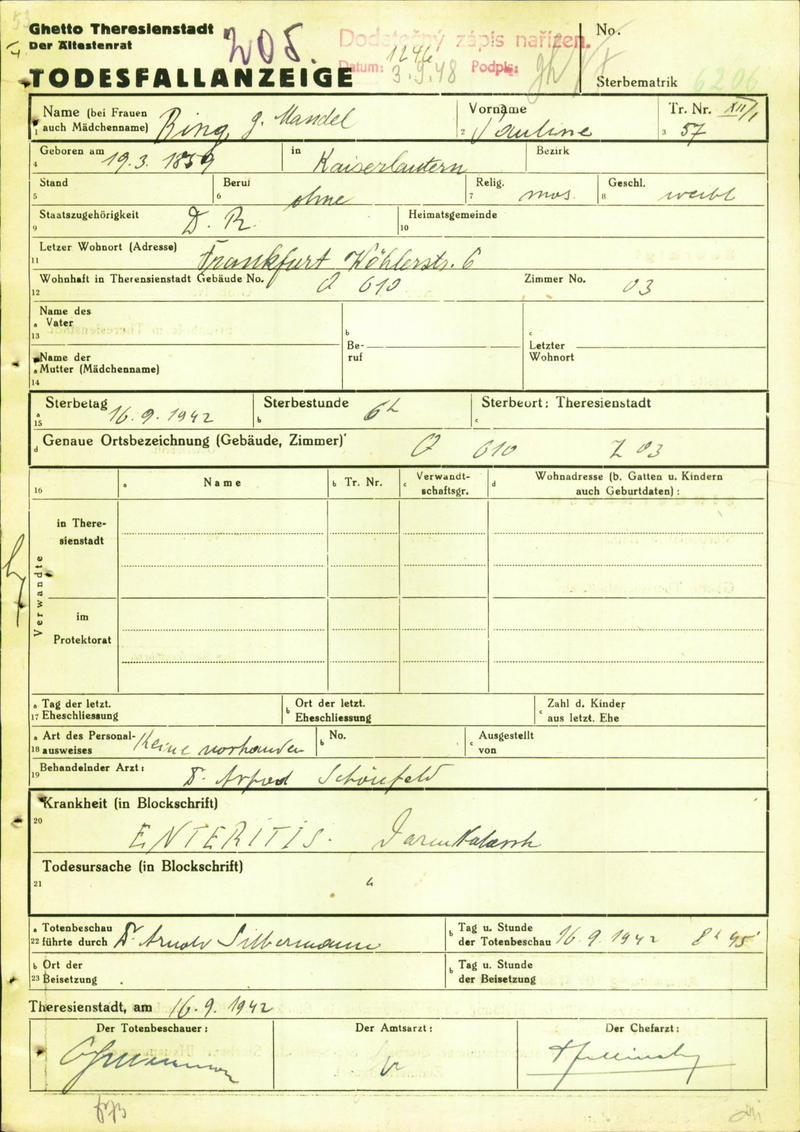 Ghetto Theresienstadt
Der Ältestenrat
TODESFALLANZEIGE
205.
Dodatečný zápis nařízen.
Datum: 3.9.48 Podpis:
1246
No.
Sterbematrik 6206
Name (bei Frauen
1 auch Mädchenname) Ring g. Mandel
Vorname
2 Pauline
Tr. Nr. XII/1
3 57
Geboren am 19.3. 1859
4
in Kaiserlautern
Bezirk
Stand
5
Beruf
6 ohne
Relig.
7 mos.
Geschl.
8 weibl
Staatszugehörigkeit D. R.
9
Heimatsgemeinde
10
Letzer Wohnort (Adresse)
11 Frankfurt Köhlerstr. 6
Wohnhaft in Theresienstadt Gebäude No. Q 610
12
Zimmer No. 03
Name des
a Vater
13
b
Be-
ruf
c
Letzter
Wohnort
Name der
a Mutter (Mädchenname)
14
Sterbetag 16.9.1942
a
15
Sterbestunde 6h
b
Sterbeort: Theresienstadt
c
d Genaue Ortsbezeichnung (Gebäude, Zimmer) Q 610 Z 03
16
a Name
b Tr. Nr.
c Verwandt-
schaftsgr.
d Wohnadresse (b. Gatten u. Kindern
auch Geburtdaten) :
Verwandte
in There-
sienstadt
im
Protektorat
a Tag der letzt.
17 Eheschliessung
b Ort der letzt.
Eheschliessung
c Zahl d. Kinder
aus letzt. Ehe
a Art des Personal-
18 ausweises Keine vorhanden
b No.
c Ausgestellt
von
19 Behandelnder Arzt: Dr. Schönfeld
Krankheit (in Blockschrift)
20
ENTERITIS. Darmkatarrh
Todesursache (in Blockschrift)
21
a Totenbeschau
22 führte durch Dr Arnold Silbermann
b Tag u. Stunde
der Totenbeschau 16.9.1942 8h 45'
b Ort der
23 Beisetzung
b Tag u. Stunde
der Beisetzung
Theresienstadt, am 16.9.1942
Der Totenbeschauer:
Der Amtsarzt:
Der Chefarzt: